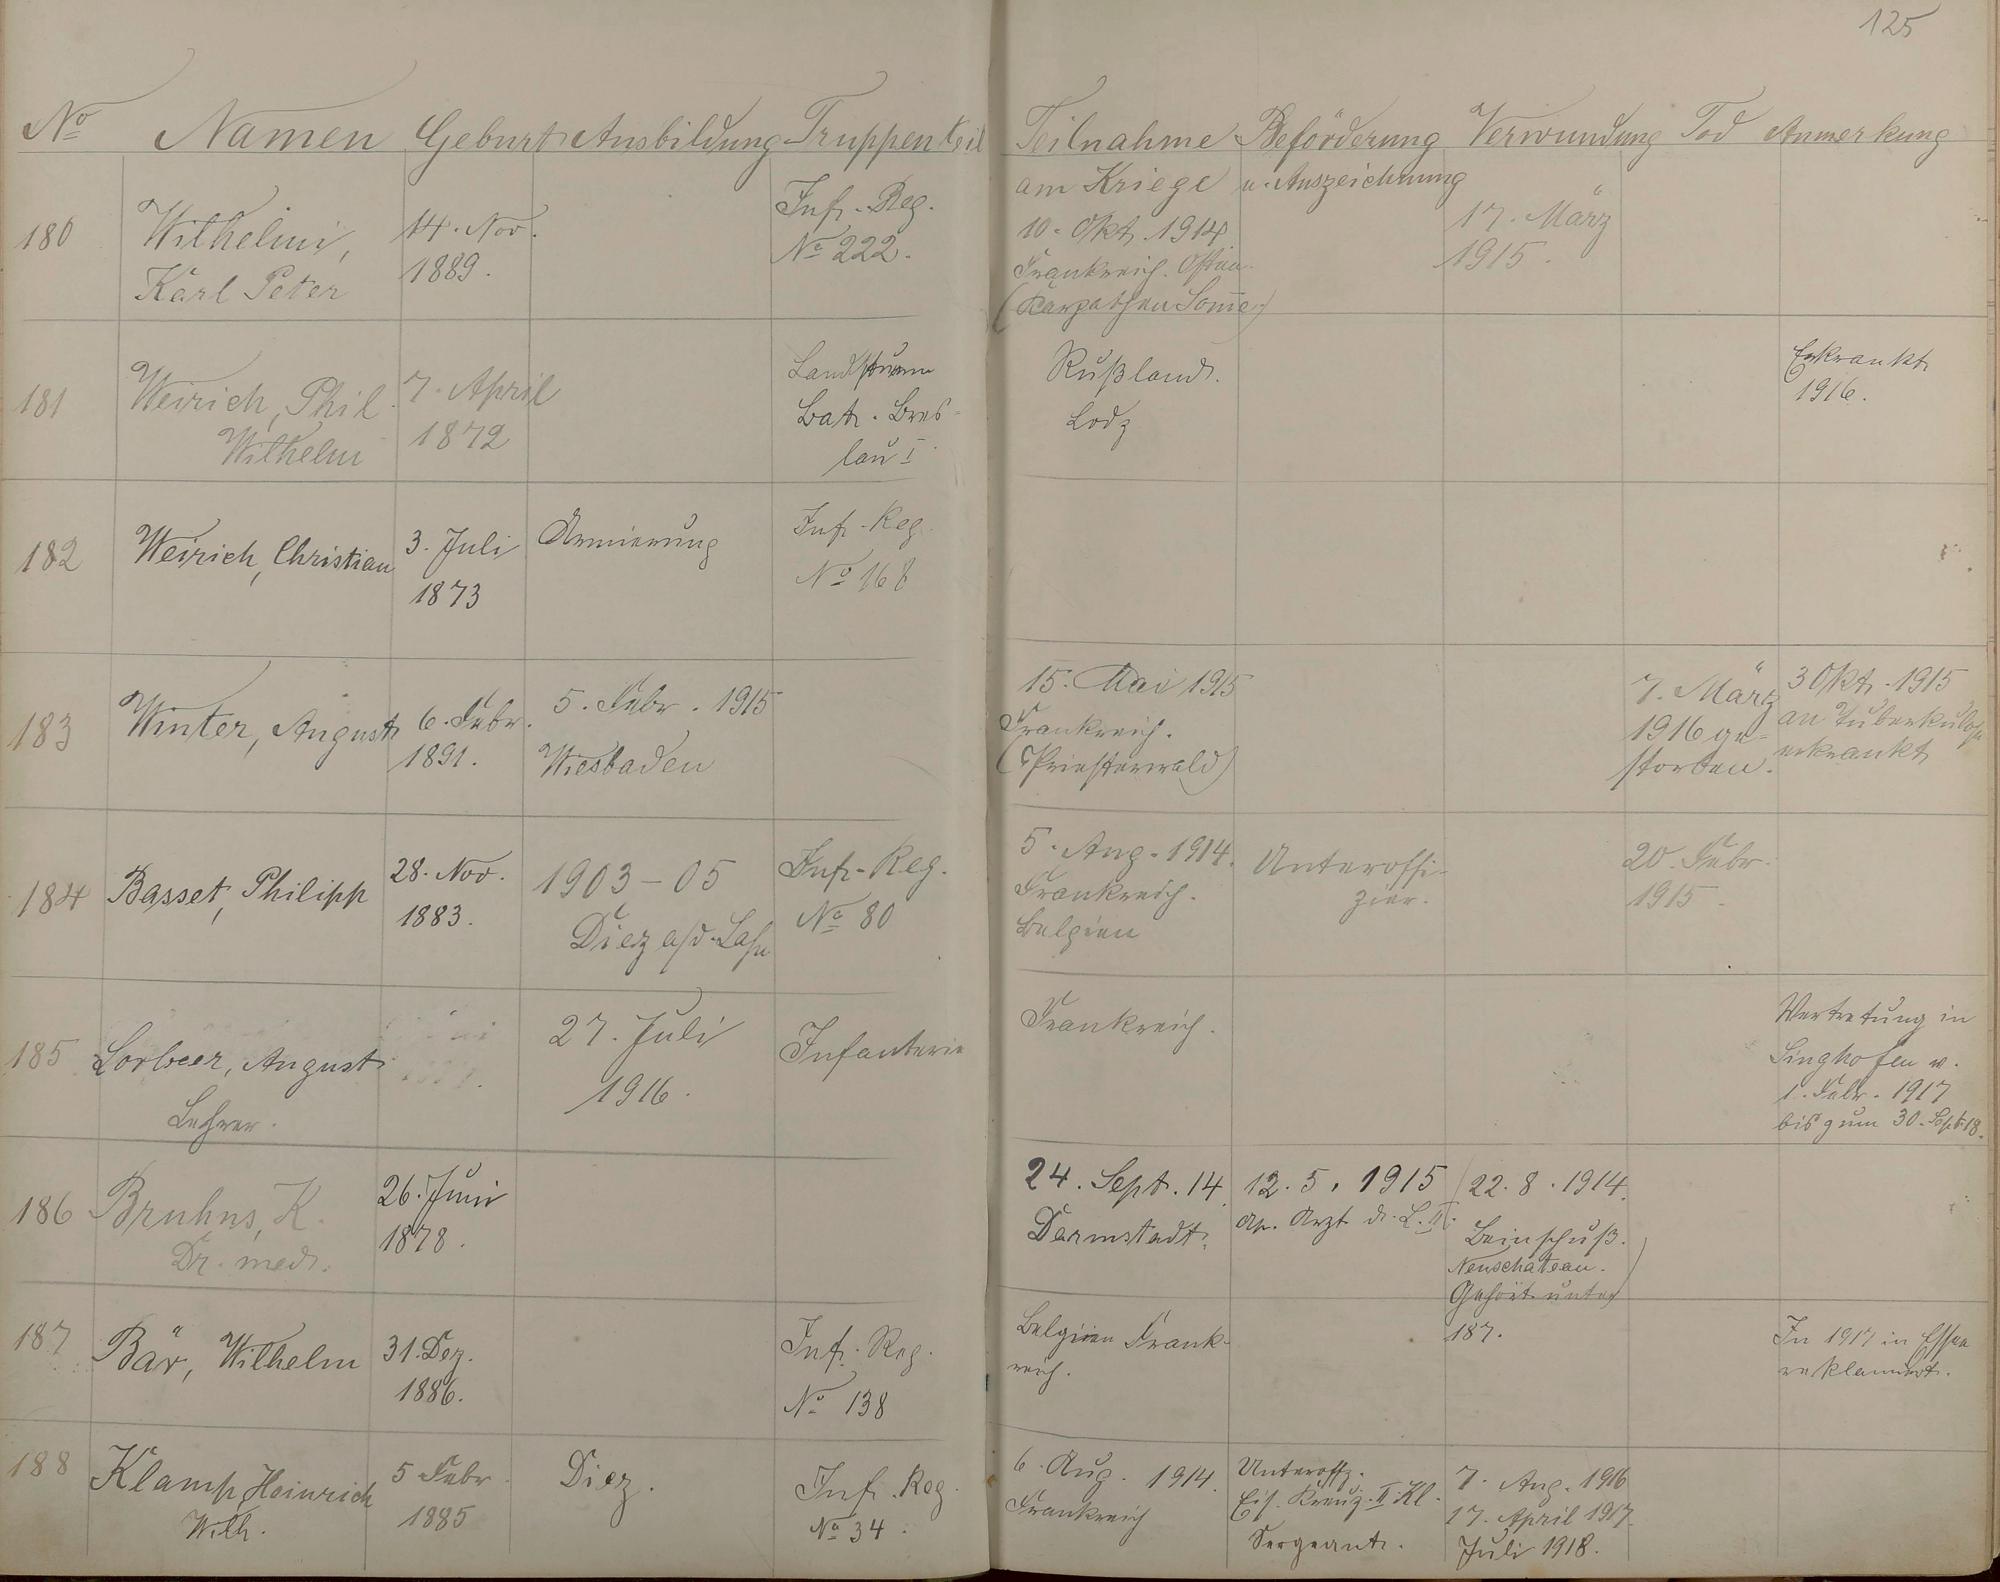 125
No Namen Geburt Ausbildung Truppenteil Teilnahme Beförderung Verwundung Tod Anmerkung
am Kriege u. Auszeichnung
180 Wilhelmi,
Karl Peter
14. Nov.
1889.
Inf.-Reg.
No 222.
10. Okt. 1914
Frankreich. Osten.
(Karpathen Somme)
17. März
1915.
181 Weirich, Phil.
Wilhelm
7. April
1872
Landsturm
Bat. Bres-
lau I.
Rußland.
Lodz
Erkrankt
1916.
182 Weirich, Christian
3. Juli
1873
Armierung
Inf.-Reg.
No 168
183 Winter, August
6. Febr.
1891.
5. Febr. 1915
Wiesbaden
15. Mai 1915
Frankreich.
(Priesterwald)
7. März
1916 ge-
storben.
3 Okt. 1915
an Tuberkulose
erkrankt
184 Basset, Philipp
28. Nov.
1883.
1903-05
Diez a/d Lahn
Inf.-Reg.
No 80
5. Aug. 1914.
Frankreich.
Belgien
Unteroffi-
zier.
20. Febr.
1915.
185 Lorbeer, August
Lehrer.
27. Juli
1916.
Infanterie
Frankreich.
Vertretung in
Singhofen v.
1. Febr. 1917
bis zum 30. Sept. 18.
186 Bruhns, K.
Dr. med.
26. Juni
1878.
24. Sept. 14.
Darmstadt.
12. 5. 1915
Arzt d. L. II.
22. 8. 1914.
Beinschuß.
Neuschateau.
Gehört unter
187.
187 Bär, Wilhelm
31. Dez.
1886.
Inf.-Reg.
No 138
Belgien Frank-
reich.
In 1917 in Essen
reklamiert.
188 Klamp, Heinrich
Wilh.
5 Febr.
1885
Diez.
Inf. Reg.
No 34.
6. Aug. 1914.
Frankreich
Unteroffz.
Eis. Kreuz. II Kl.
Sergeant.
7. Aug. 1916
17. April 1917.
Juli 1918.